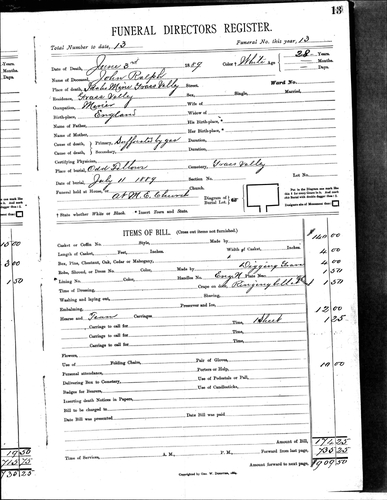 13
FUNERAL DIRECTORS REGISTER.
Total Number to date, 13 Funeral No. this year, 13
Date of Death, June 3rd 1889 Color † White Age 28 Years. Months. Days.
Name of Deceased, John Ralph
Place of death, Idaho Mine Grass Valley Street, Ward No.
Residence, Grass Valley Sex, Single, Married,
Occupation, Miner Wife of
Birth-place, England Widow of
Name of Father, His Birth-place *
Name of Mother, Her Birth-place *
Cause of death, Primary, Suffocated by gas
Cause of death, Secondary,
Certifying Physician,
Place of burial, Odd Fellows Cemetery, Grass Valley
Date of burial, July 11 1889 Section No. Lot No.
Funeral held at House, or At M. E. Church Church.
Diagram of Burial Lot
† State whether White or Black. * Insert Town and State.
ITEMS OF BILL. (Cross out items not furnished.)
Casket or Coffin No. Style, Made by $ 140.00
Length of Casket, Feet, Inches. Width of Casket, Inches. 4 00
Box, Pine, Chestnut, Oak, Cedar or Mahogany, Digging Grave 4 00
Robe, Shroud, or Dress No. Color, Made by 1 50
Lining No. Color, Handles No. Plate No.
Time of Dressing, Crape on door, Ringing bell 1 50
Washing and laying out, Shaving,
Embalming, Preserver and Ice, 12 00
Hearse and Team Carriages. Sheet 1 25
Carriage to call for Time,
Carriage to call for Time,
Carriage to call for Time,
Carriage to call for Time,
Flowers,
Use of Folding Chairs, Pair of Gloves, 10 00
Personal attendance, Porters or Help,
Delivering Box to Cemetery, Use of Pedestals or Pall,
Badges for Bearers, Use of Candlesticks,
Inserting death Notices in Papers,
Bill to be charged to
Date Bill was presented Date Bill was paid
Amount of Bill, 174 25
Time of Services, A. M., P. M., Forward from last page, 735 25
Amount forward to next page, $ 909 50
Copyrighted by Geo. W.